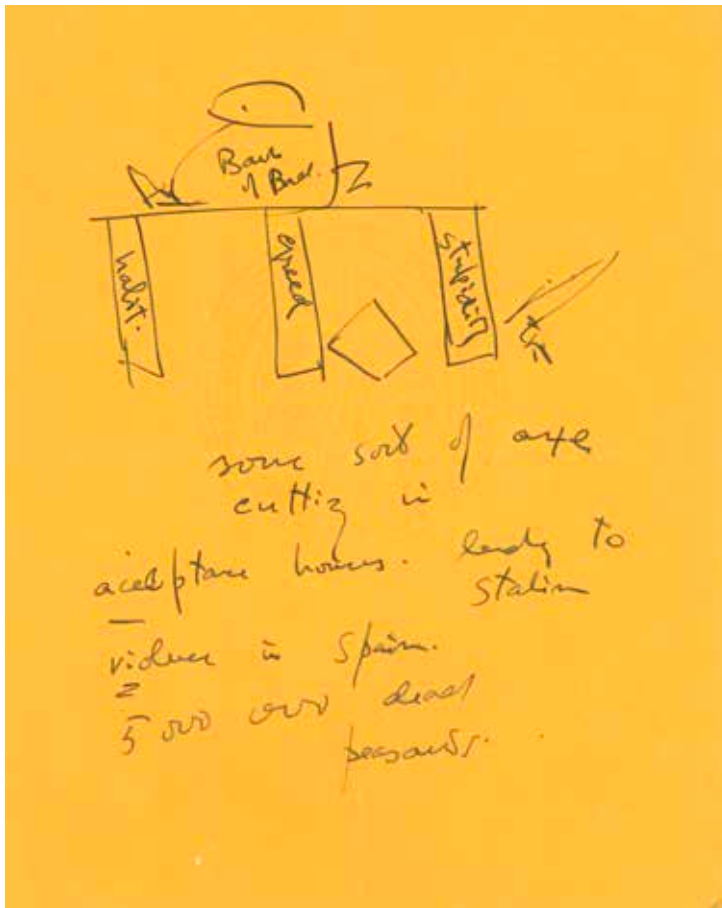 Bank
of Brit.
habit.
greed
stupidity
some sort of axe
cutting in
acceptance houses. lendg to
Stalin
violence in Spain.
5 000 000 dead
peasants.